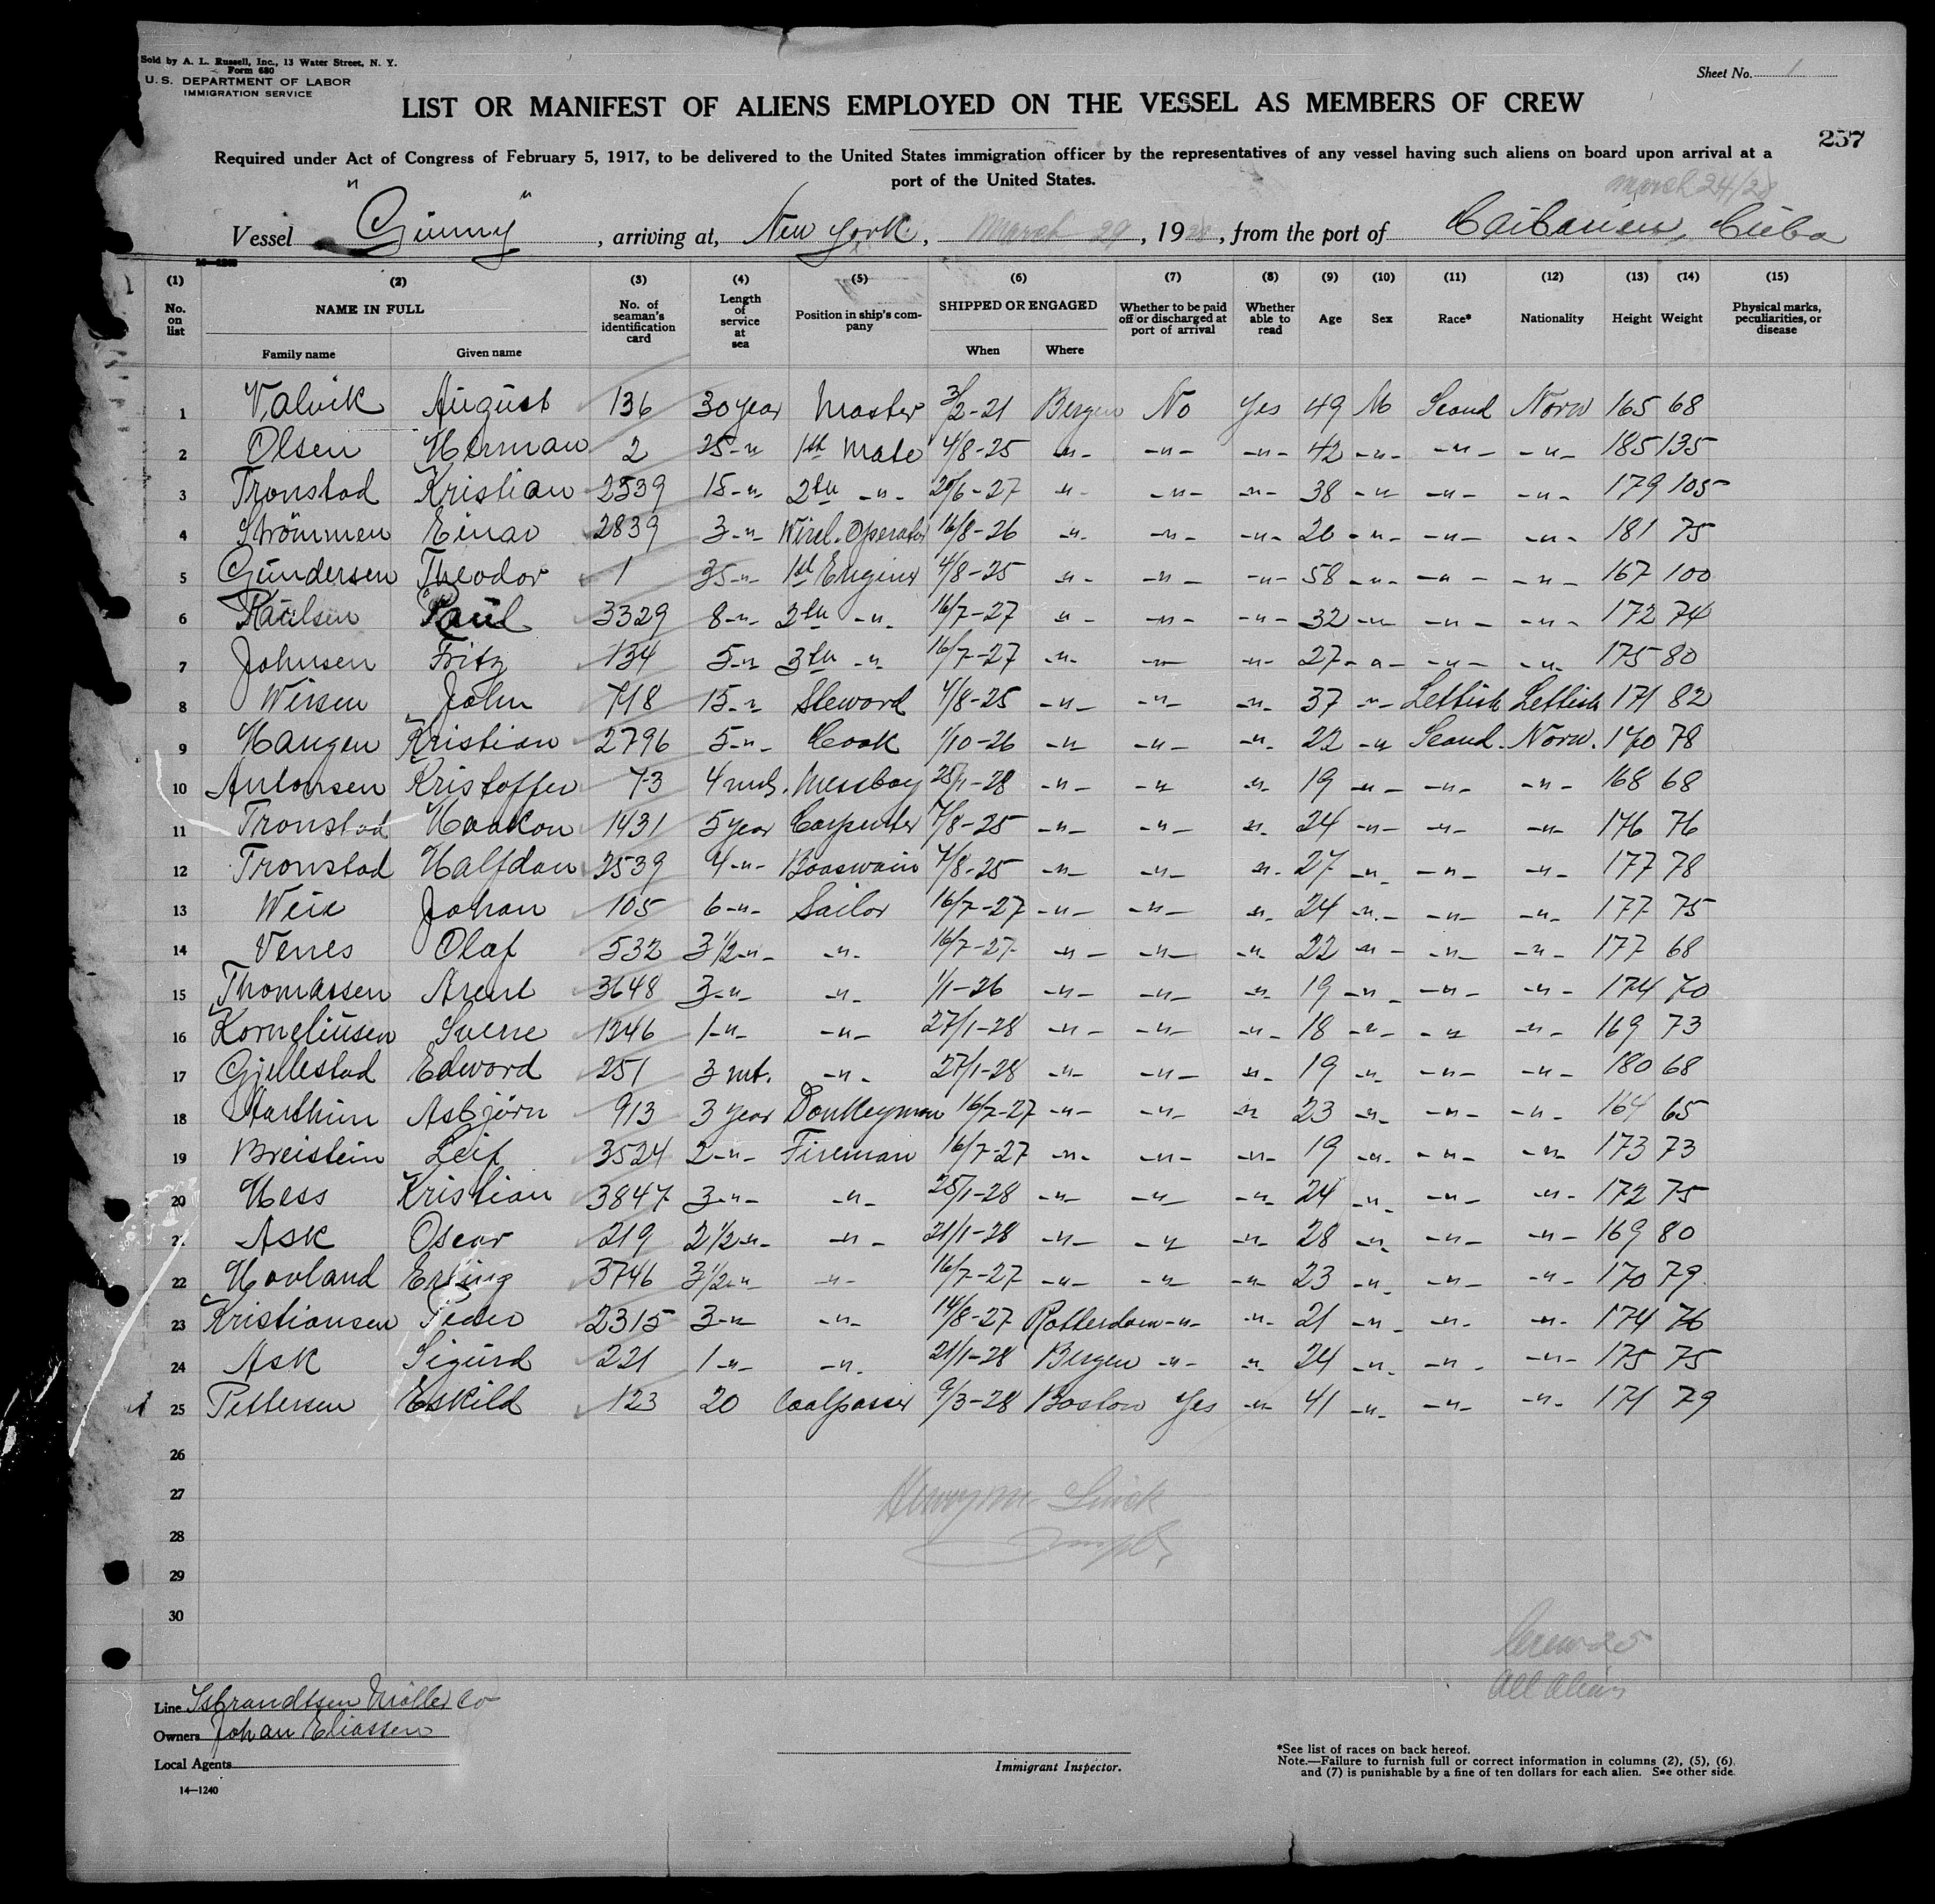 Sold by A. L. Russell, Inc., 13 Water Street, N. Y.
Form 680
U. S. DEPARTMENT OF LABOR
IMMIGRATION SERVICE
Sheet No. 1
LIST OR MANIFEST OF ALIENS EMPLOYED ON THE VESSEL AS MEMBERS OF CREW
257
Required under Act of Congress of February 5, 1917, to be delivered to the United States immigration officer by the representatives of any vessel having such aliens on board upon arrival at a
port of the United States.
March 24/28
Vessel "Gunny", arriving at, New York, March 29, 1928, from the port of Caibarien, Cuba
(1) (2) (3) (4) (5) (6) (7) (8) (9) (10) (11) (12) (13) (14) (15)
No. on list NAME IN FULL Family name Given name No. of seaman's identification card Length of service at sea Position in ship's company SHIPPED OR ENGAGED When Where Whether to be paid off or discharged at port of arrival Whether able to read Age Sex Race* Nationality Height Weight Physical marks, peculiarities, or disease
1 Valvik August 136 30 year Master 3/2-21 Bergen No Yes 49 M Scand Norw 165 68
2 Olsen Herman 2 25 -"- 1th Mate 4/8-25 -"- -"- -"- 42 -"- -"- -"- 185 135
3 Tronstad Kristian 2539 15 -"- 2th -"- 29/6-27 -"- -"- -"- 38 -"- -"- -"- 179 105
4 Strömmen Einar 2839 3 -"- Wirel. Operator 16/8-26 -"- -"- -"- 20 -"- -"- -"- 181 75
5 Gundersen Theodor 1 35 -"- 1st Engine 4/8-25 -"- -"- -"- 58 -"- -"- -"- 167 100
6 Paulsen Paul 3329 8 -"- 2th -"- 16/7-27 -"- -"- -"- 32 -"- -"- -"- 172 74
7 Johnsen Fritz 134 5 -"- 3th -"- 16/7-27 -"- -"- -"- 27 -"- -"- -"- 175 80
8 John 718 15 -"- Steward 4/8-25 -"- -"- -"- 37 -"- Lettish Lettish 171 82
9 Haugen Kristian 2796 5 -"- Cook 1/10-26 -"- -"- -"- 22 -"- Scand. Norw. 170 78
10 Antonsen Kristoffer 73 4 mth. Messboy 25/1-28 -"- -"- -"- 19 -"- -"- -"- 168 68
11 Tronstad Haakon 1431 5 year Carpenter 7/8-25 -"- -"- -"- 24 -"- -"- -"- 176 76
12 Tronstad Halfdan 2539 4 -"- Boaswain 7/8-25 -"- -"- -"- 27 -"- -"- -"- 177 78
13 Johan 105 6 -"- Sailor 16/7-27 -"- -"- -"- 24 -"- -"- -"- 177 75
14 Venes Olaf 532 3 1/2 -"- -"- 16/7-27 -"- -"- -"- 22 -"- -"- -"- 177 68
15 Thomassen Arent 3648 3 -"- -"- 1/1-26 -"- -"- -"- 19 -"- -"- -"- 174 70
16 Korneliusen Sverre 1246 1 -"- -"- 27/1-28 -"- -"- -"- 18 -"- -"- -"- 169 73
17 Gjellestad Edward 251 3 mt. -"- 27/1-28 -"- -"- -"- 19 -"- -"- -"- 180 68
18 Aarthun Asbjörn 913 3 year Donkeyman 16/7-27 -"- -"- -"- 23 -"- -"- -"- 164 65
19 Breistein Leif 3524 2 -"- Fireman 16/7-27 -"- -"- -"- 19 -"- -"- -"- 173 73
20 Hess Kristian 3847 3 -"- -"- 25/1-28 -"- -"- -"- 24 -"- -"- -"- 172 75
21 Ask Oscar 219 2 1/2 -"- -"- 21/1-28 -"- -"- -"- 28 -"- -"- -"- 169 80
22 Hovland Erling 3746 3 1/2 -"- -"- 16/7-27 -"- -"- -"- 23 -"- -"- -"- 170 79
23 Kristiansen Peder 2315 3 -"- -"- 14/8-27 Rotterdam -"- -"- 21 -"- -"- -"- 174 76
24 Ask Sigurd 221 1 -"- -"- 21/1-28 Bergen -"- -"- 24 -"- -"- -"- 175 75
25 Pettersen Eskild 123 20 Coalpasser 9/3-28 Boston Yes -"- 41 -"- -"- -"- 171 79
26
27
28
29
30
Crew 25
All Alien
Line Isbrandtsen Moller Co
Owners Johan Eliassen
Local Agents
Immigrant Inspector.
*See list of races on back hereof.
Note.—Failure to furnish full or correct information in columns (2), (5), (6),
and (7) is punishable by a fine of ten dollars for each alien. See other side.
14—1240